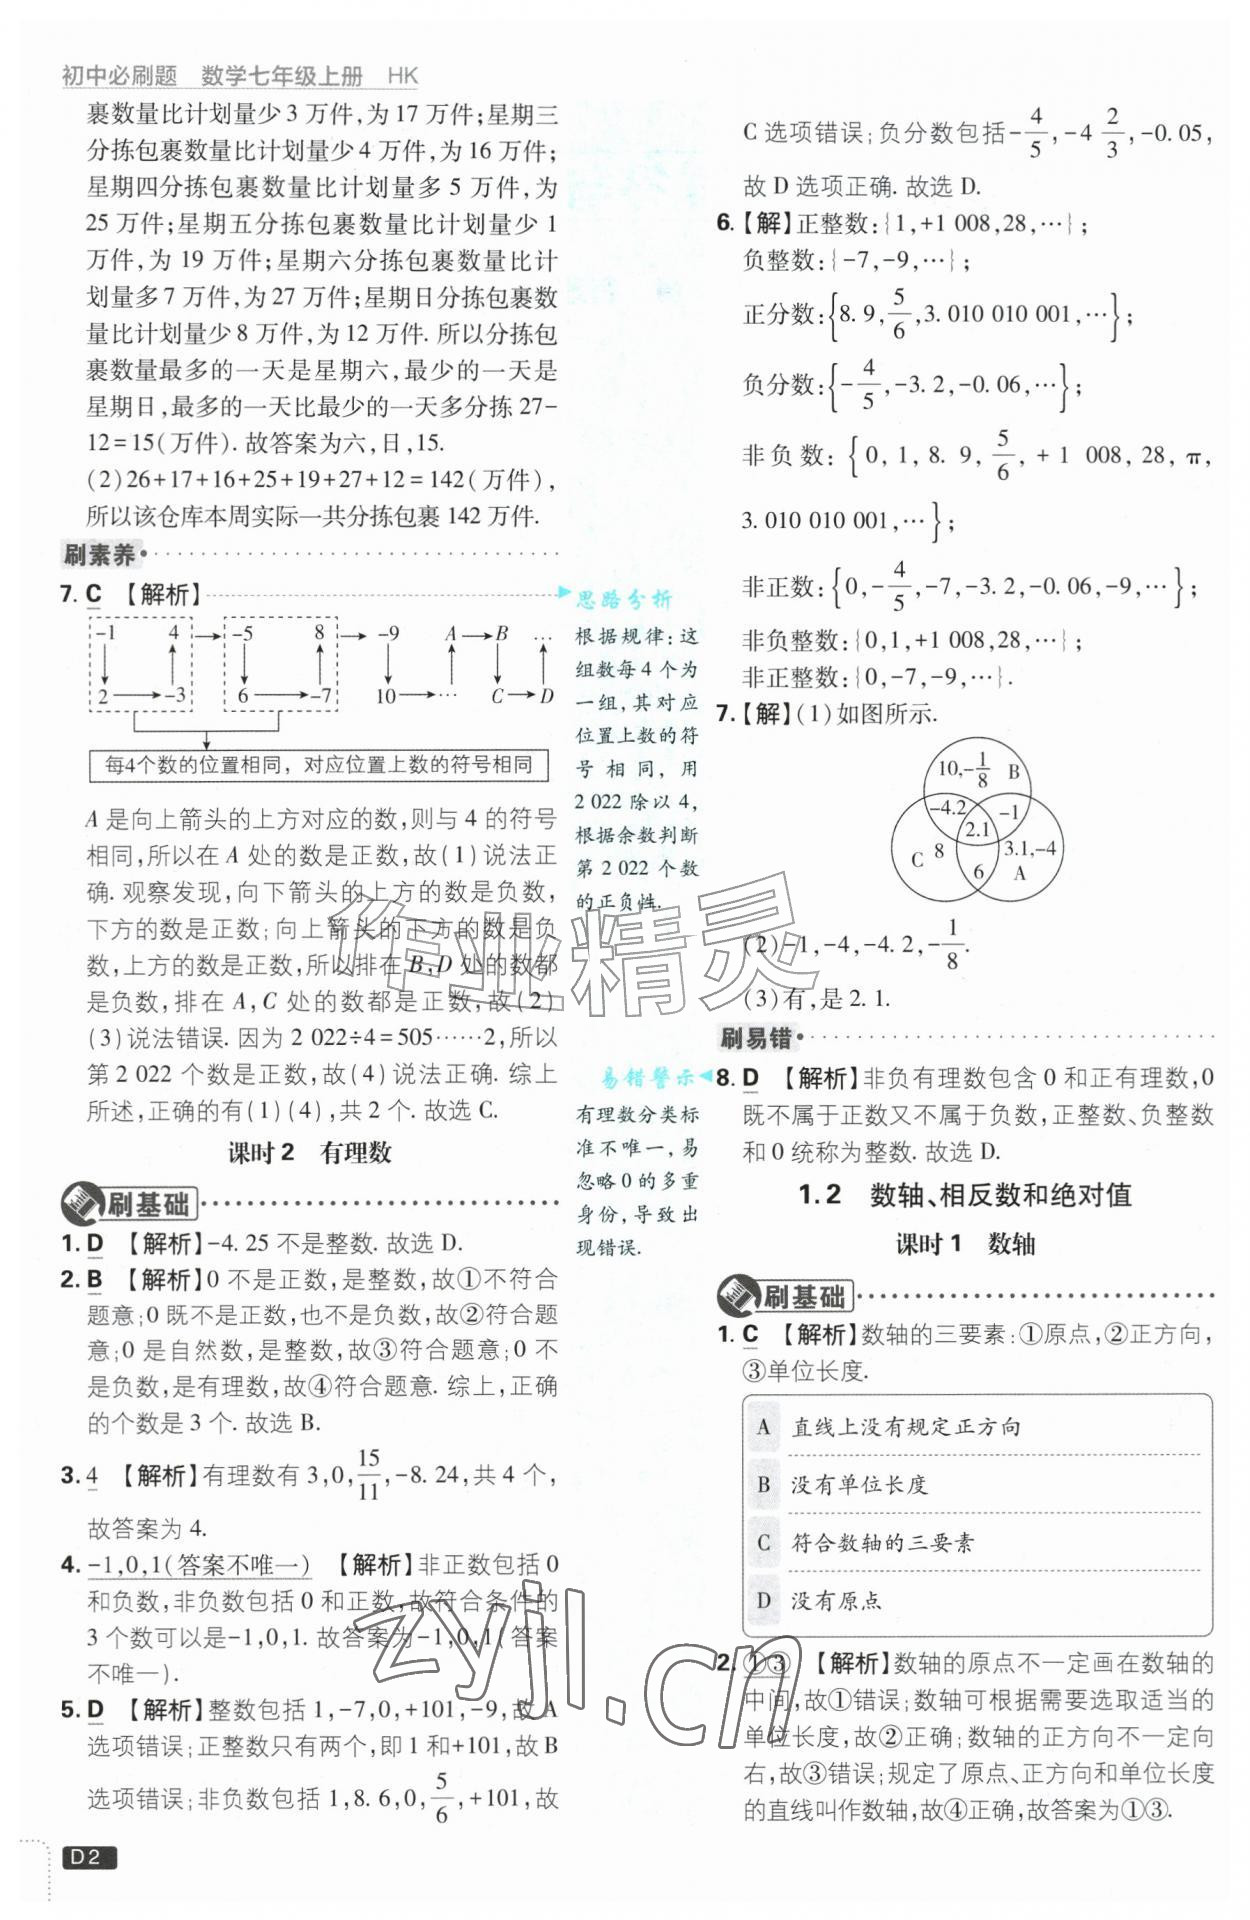 初中必刷题 数学七年级上册 HK
裹数量比计划量少 3 万件,为 17 万件;星期三
分拣包裹数量比计划量少 4 万件,为 16 万件;
星期四分拣包裹数量比计划量多 5 万件,为
25 万件;星期五分拣包裹数量比计划量少 1
万件,为 19 万件;星期六分拣包裹数量比计
划量多 7 万件,为 27 万件;星期日分拣包裹数
量比计划量少 8 万件,为 12 万件. 所以分拣包
裹数量最多的一天是星期六,最少的一天是
星期日,最多的一天比最少的一天多分拣 27-
12=15(万件). 故答案为六,日,15.
(2)26+17+16+25+19+27+12=142(万件),
所以该仓库本周实际一共分拣包裹 142 万件.
刷素养
7. C 【解析】
-1 4 -5 8 -9 A B …
2 -3 6 -7 10 … C D
每4个数的位置相同，对应位置上数的符号相同
A 是向上箭头的上方对应的数,则与 4 的符号
相同,所以在 A 处的数是正数,故(1)说法正
确. 观察发现,向下箭头的上方的数是负数,
下方的数是正数;向上箭头的下方的数是负
数,上方的数是正数,所以排在 B,D 处的数都
是负数,排在 A,C 处的数都是正数,故(2)
(3)说法错误. 因为 2 022÷4=505……2,所以
第 2 022 个数是正数,故(4)说法正确. 综上
所述,正确的有(1)(4),共 2 个. 故选 C.
思路分析
根据规律:这
组数每 4 个为
一组,其对应
位置上数的符
号相同,用
2 022 除以 4,
根据余数判断
第 2 022 个数
的正负性.
课时 2 有理数
刷基础
1. D 【解析】-4. 25 不是整数. 故选 D.
2. B 【解析】0 不是正数,是整数,故①不符合
题意;0 既不是正数,也不是负数,故②符合题
意;0 是自然数,是整数,故③符合题意;0 不
是负数,是有理数,故④符合题意. 综上,正确
的个数是 3 个. 故选 B.
3. 4 【解析】有理数有 3,0,15/11,-8. 24,共 4 个,
故答案为 4.
4. -1,0,1(答案不唯一) 【解析】非正数包括 0
和负数,非负数包括 0 和正数,故符合条件的
3 个数可以是-1,0,1. 故答案为-1,0,1(答案
不唯一).
5. D 【解析】整数包括 1,-7,0,+101,-9,故 A
选项错误;正整数只有两个,即 1 和+101,故 B
选项错误;非负数包括 1,8. 6,0,5/6,+101,故
C 选项错误;负分数包括-4/5,-4 2/3,-0. 05,
故 D 选项正确. 故选 D.
6.【解】正整数:{1,+1 008,28,…};
负整数:{-7,-9,…};
正分数:{8. 9,5/6,3. 010 010 001,…};
负分数:{-4/5,-3. 2,-0. 06,…};
非负数:{0,1,8. 9,5/6,+1 008,28,π,
3. 010 010 001,…};
非正数:{0,-4/5,-7,-3. 2,-0. 06,-9,…};
非负整数:{0,1,+1 008,28,…};
非正整数:{0,-7,-9,…}.
7.【解】(1)如图所示.
10,-1/8 B
-4.2 -1
2.1
C 8 3.1,-4
6 A
(2)-1,-4,-4. 2,-1/8.
(3)有,是 2. 1.
刷易错
易错警示
有理数分类标
准不唯一,易
忽略 0 的多重
身份,导致出
现错误.
8. D 【解析】非负有理数包含 0 和正有理数,0
既不属于正数又不属于负数,正整数、负整数
和 0 统称为整数. 故选 D.
1. 2 数轴、相反数和绝对值
课时 1 数轴
刷基础
1. C 【解析】数轴的三要素:①原点,②正方向,
③单位长度.
A 直线上没有规定正方向
B 没有单位长度
C 符合数轴的三要素
D 没有原点
2. ①③ 【解析】数轴的原点不一定画在数轴的
中间,故①错误;数轴可根据需要选取适当的
单位长度,故②正确;数轴的正方向不一定向
右,故③错误;规定了原点、正方向和单位长度
的直线叫作数轴,故④正确,故答案为①③.
D2
作业精灵
zyjl.cn